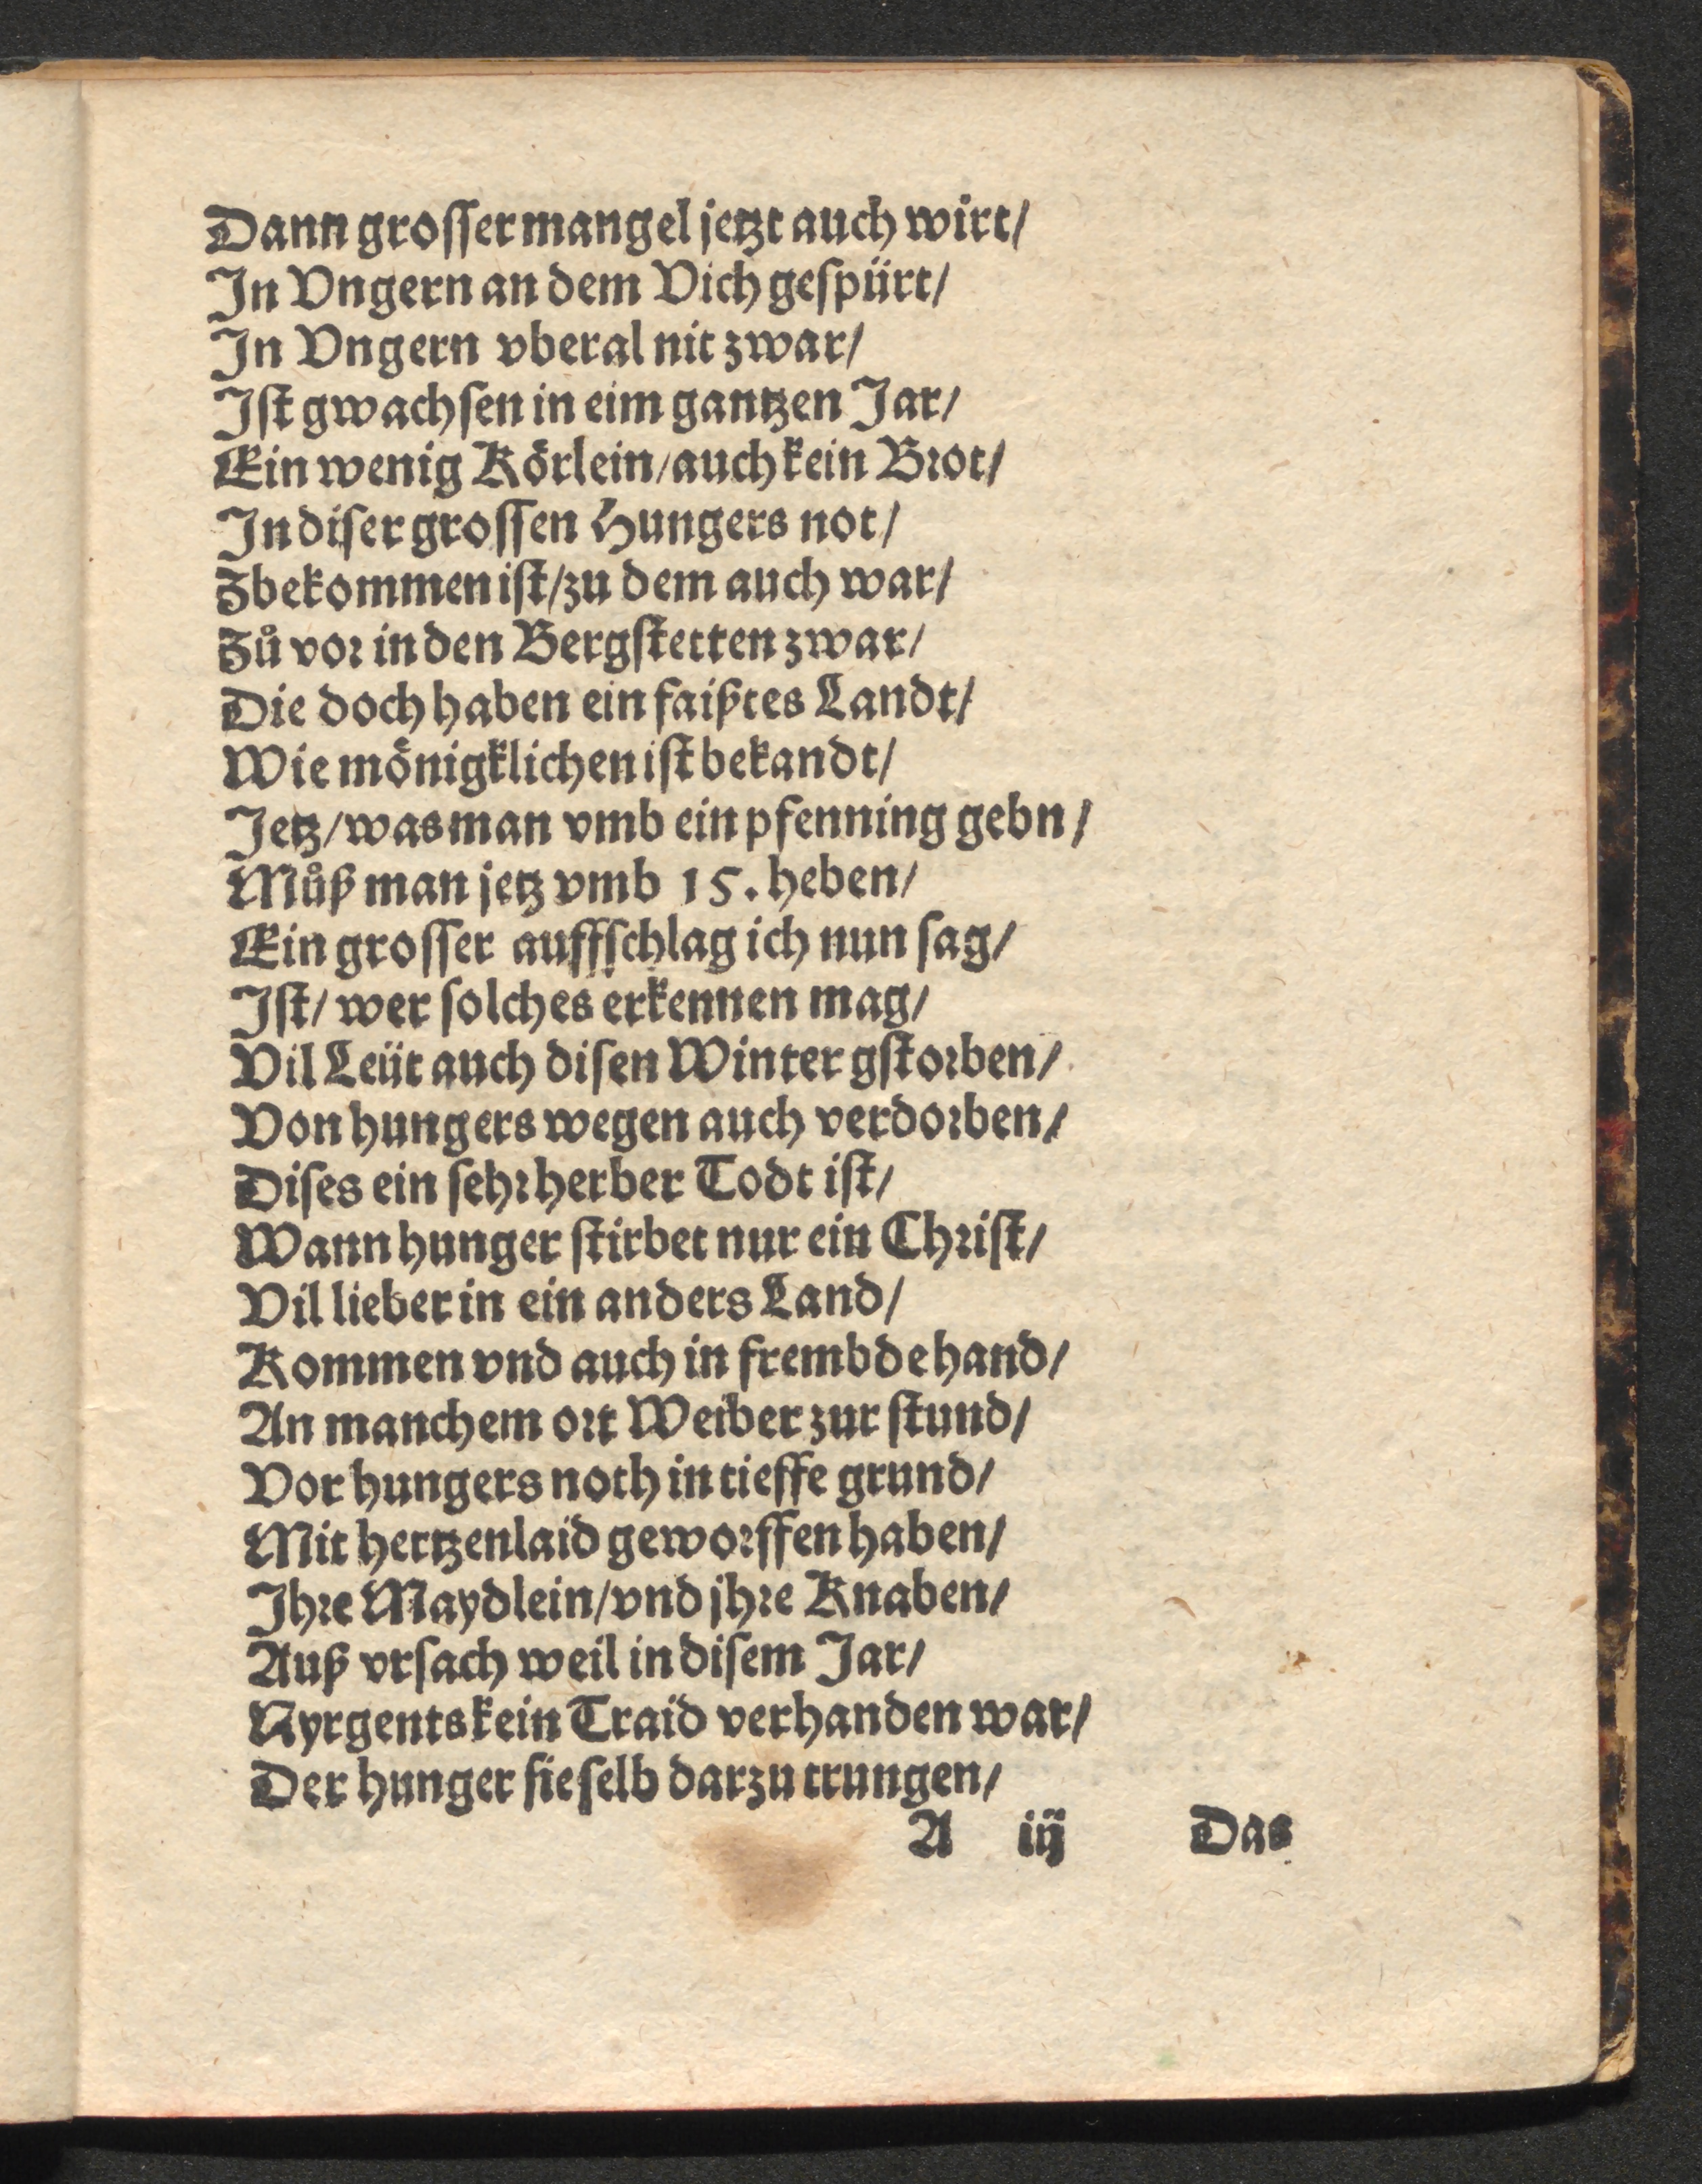 Dann groſſer mangel jetzt auch wirt/
In Vngern an dem Vich geſpürt/
In Vngern vberal nit zwar/
Iſt gwachſen in eim gantzen Jar/
Ein wenig Koͤrlein/auch kein Brot/
In diſer groſſen Hungers not/
Zbekommen iſt/zu dem auch war/
Zů vor in den Bergſtetten zwar/
Die doch haben ein faißtes Landt/
Wie moͤnigklichen iſt bekandt/
Jetz/was man vmb ein pfenning gebn/
Můß man jetz vmb 15. heben/
Ein groſſer auffſchlag ich nun ſag/
Iſt/ wer ſolches erkennen mag/
Vil Leüt auch diſen Winter gſtorben/
Von hungers wegen auch verdorben/
Diſes ein ſehr herber Todt iſt/
Wann hunger ſtirbet nur ein Chriſt/
Vil lieber in ein anders Land/
Kommen vnd auch in frembde hand/
An manchem ort Weiber zur ſtund/
Vor hungers noth in tieffe grund/
Mit hertzenlaid geworffen haben/
Ihre Maydlein/vnd jhre Knaben/
Auß vrſach weil in diſem Jar/
Nyrgents kein Traid verhanden war/
Der hunger ſie ſelb darzu trungen/
A iij Das